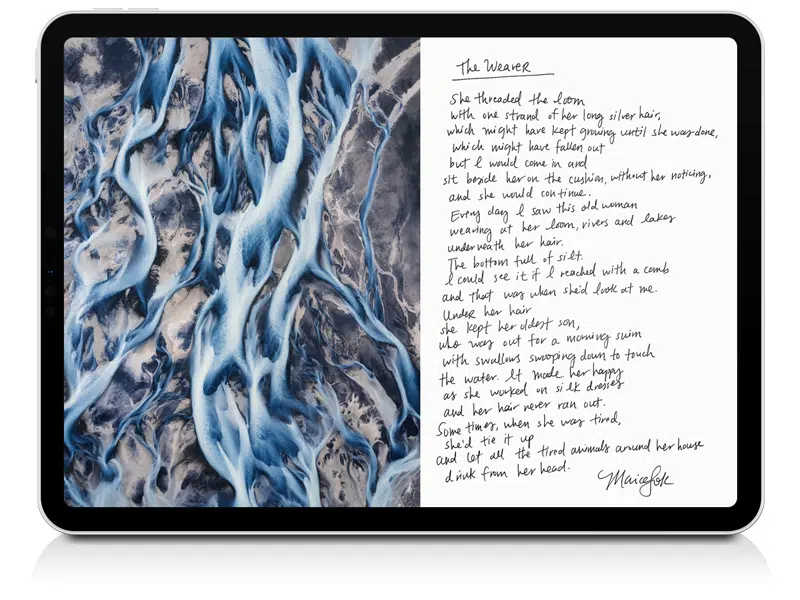 The Weaver
She threaded the loom
with one strand of her long silver hair,
which might have kept growing until she was done,
which might have fallen out
but I would come in and
sit beside her on the cushion, without her noticing,
and she would continue.
Every day I saw this old woman
weaving at her loom, rivers and lakes
underneath her hair.
The bottom full of silt.
I could see it if I reached with a comb
and that was when she'd look at me.
Under her hair
she kept her oldest son,
who was out for a morning swim
with swallows swooping down to touch
the water. It made her happy
as she worked on silk dresses
and her hair never ran out.
Sometimes, when she was tired,
she'd tie it up
and let all the tired animals around her house
drink from her head.